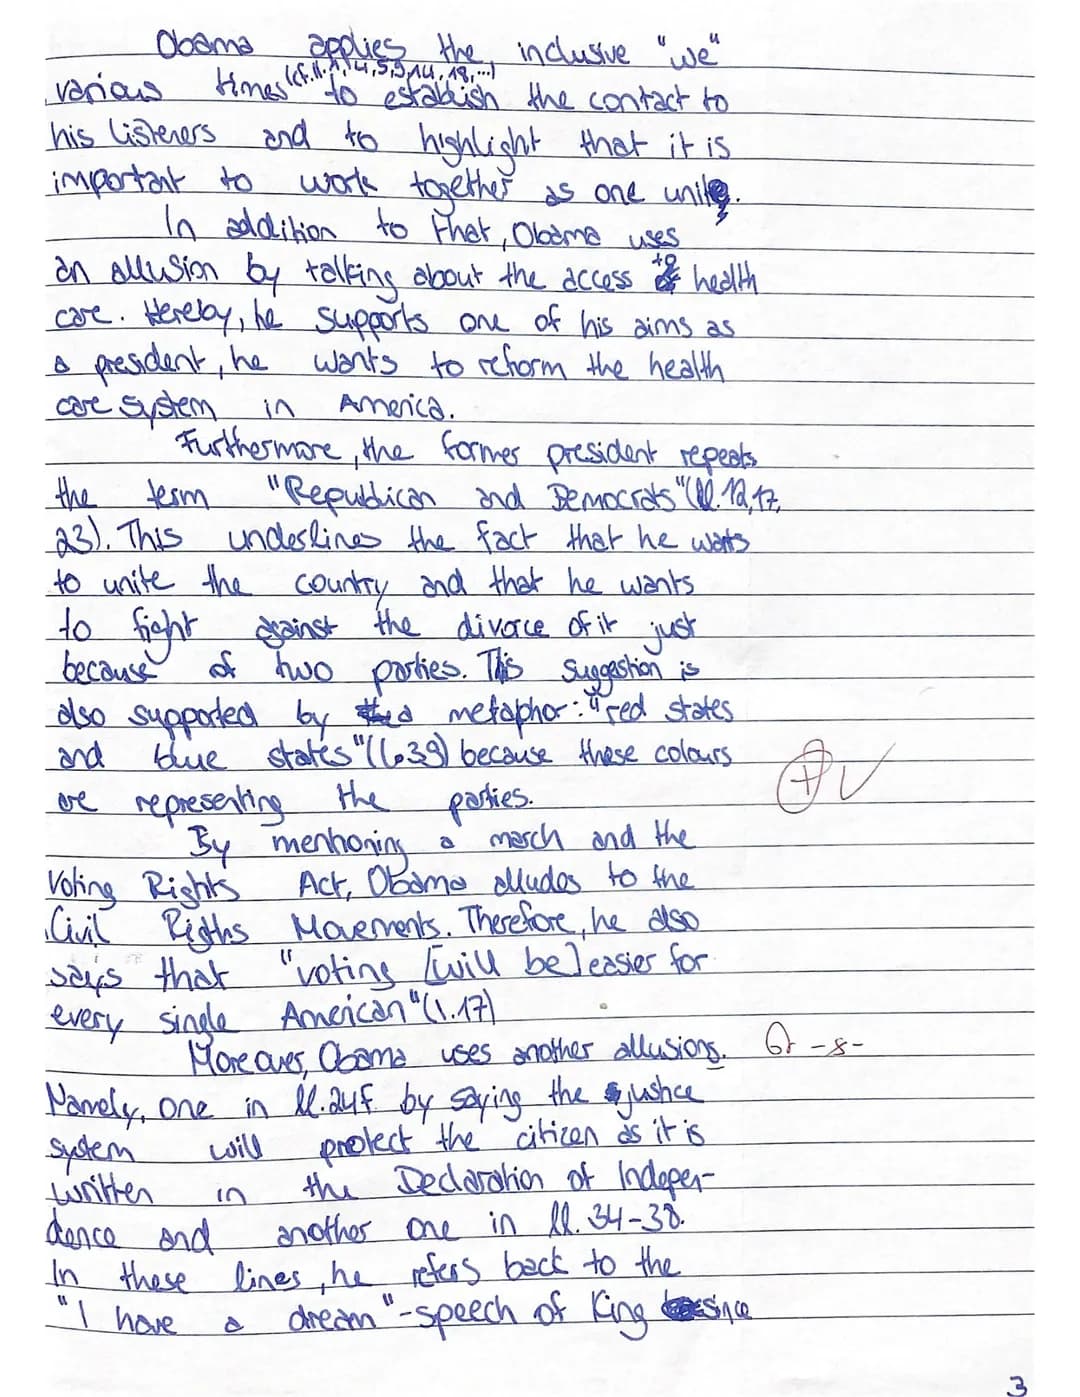 Obama applies the inclusive "we"
various times (cf. ll. 1, 4, 5, 9, 14, 18, ...) to establish the contact to
his listeners and to highlight that it is
important to work together as one unit.
In addition to that, Obama uses
an allusion by talking about the access to health
care. Hereby, he supports one of his aims as
a president, he wants to reform the health
care system in America.
Furthermore, the former president repeats
the term "Republican and Democrats" (ll. 12, 17,
23). This underlines the fact that he wants
to unite the country and that he wants
to fight against the divorce of it just
because of two parties. This suggestion is
also supported by a metaphor: "red states
and blue states" (l. 39) because these colours
are representing the parties.
By mentioning a march and the
Voting Rights Act, Obama alludes to the
Civil Rigths Movements. Therefore, he also
says that "voting [will be] easier for
every single American" (l. 17)
Moreover, Obama uses another allusions. Gr -s-
Namely, one in ll. 24f. by saying the justice
system will protect the citizen as it is
written in the Declaration of Indepen-
dence and another one in ll. 34-38.
In these lines, he refers back to the
"I have a dream"-speech of King since
3